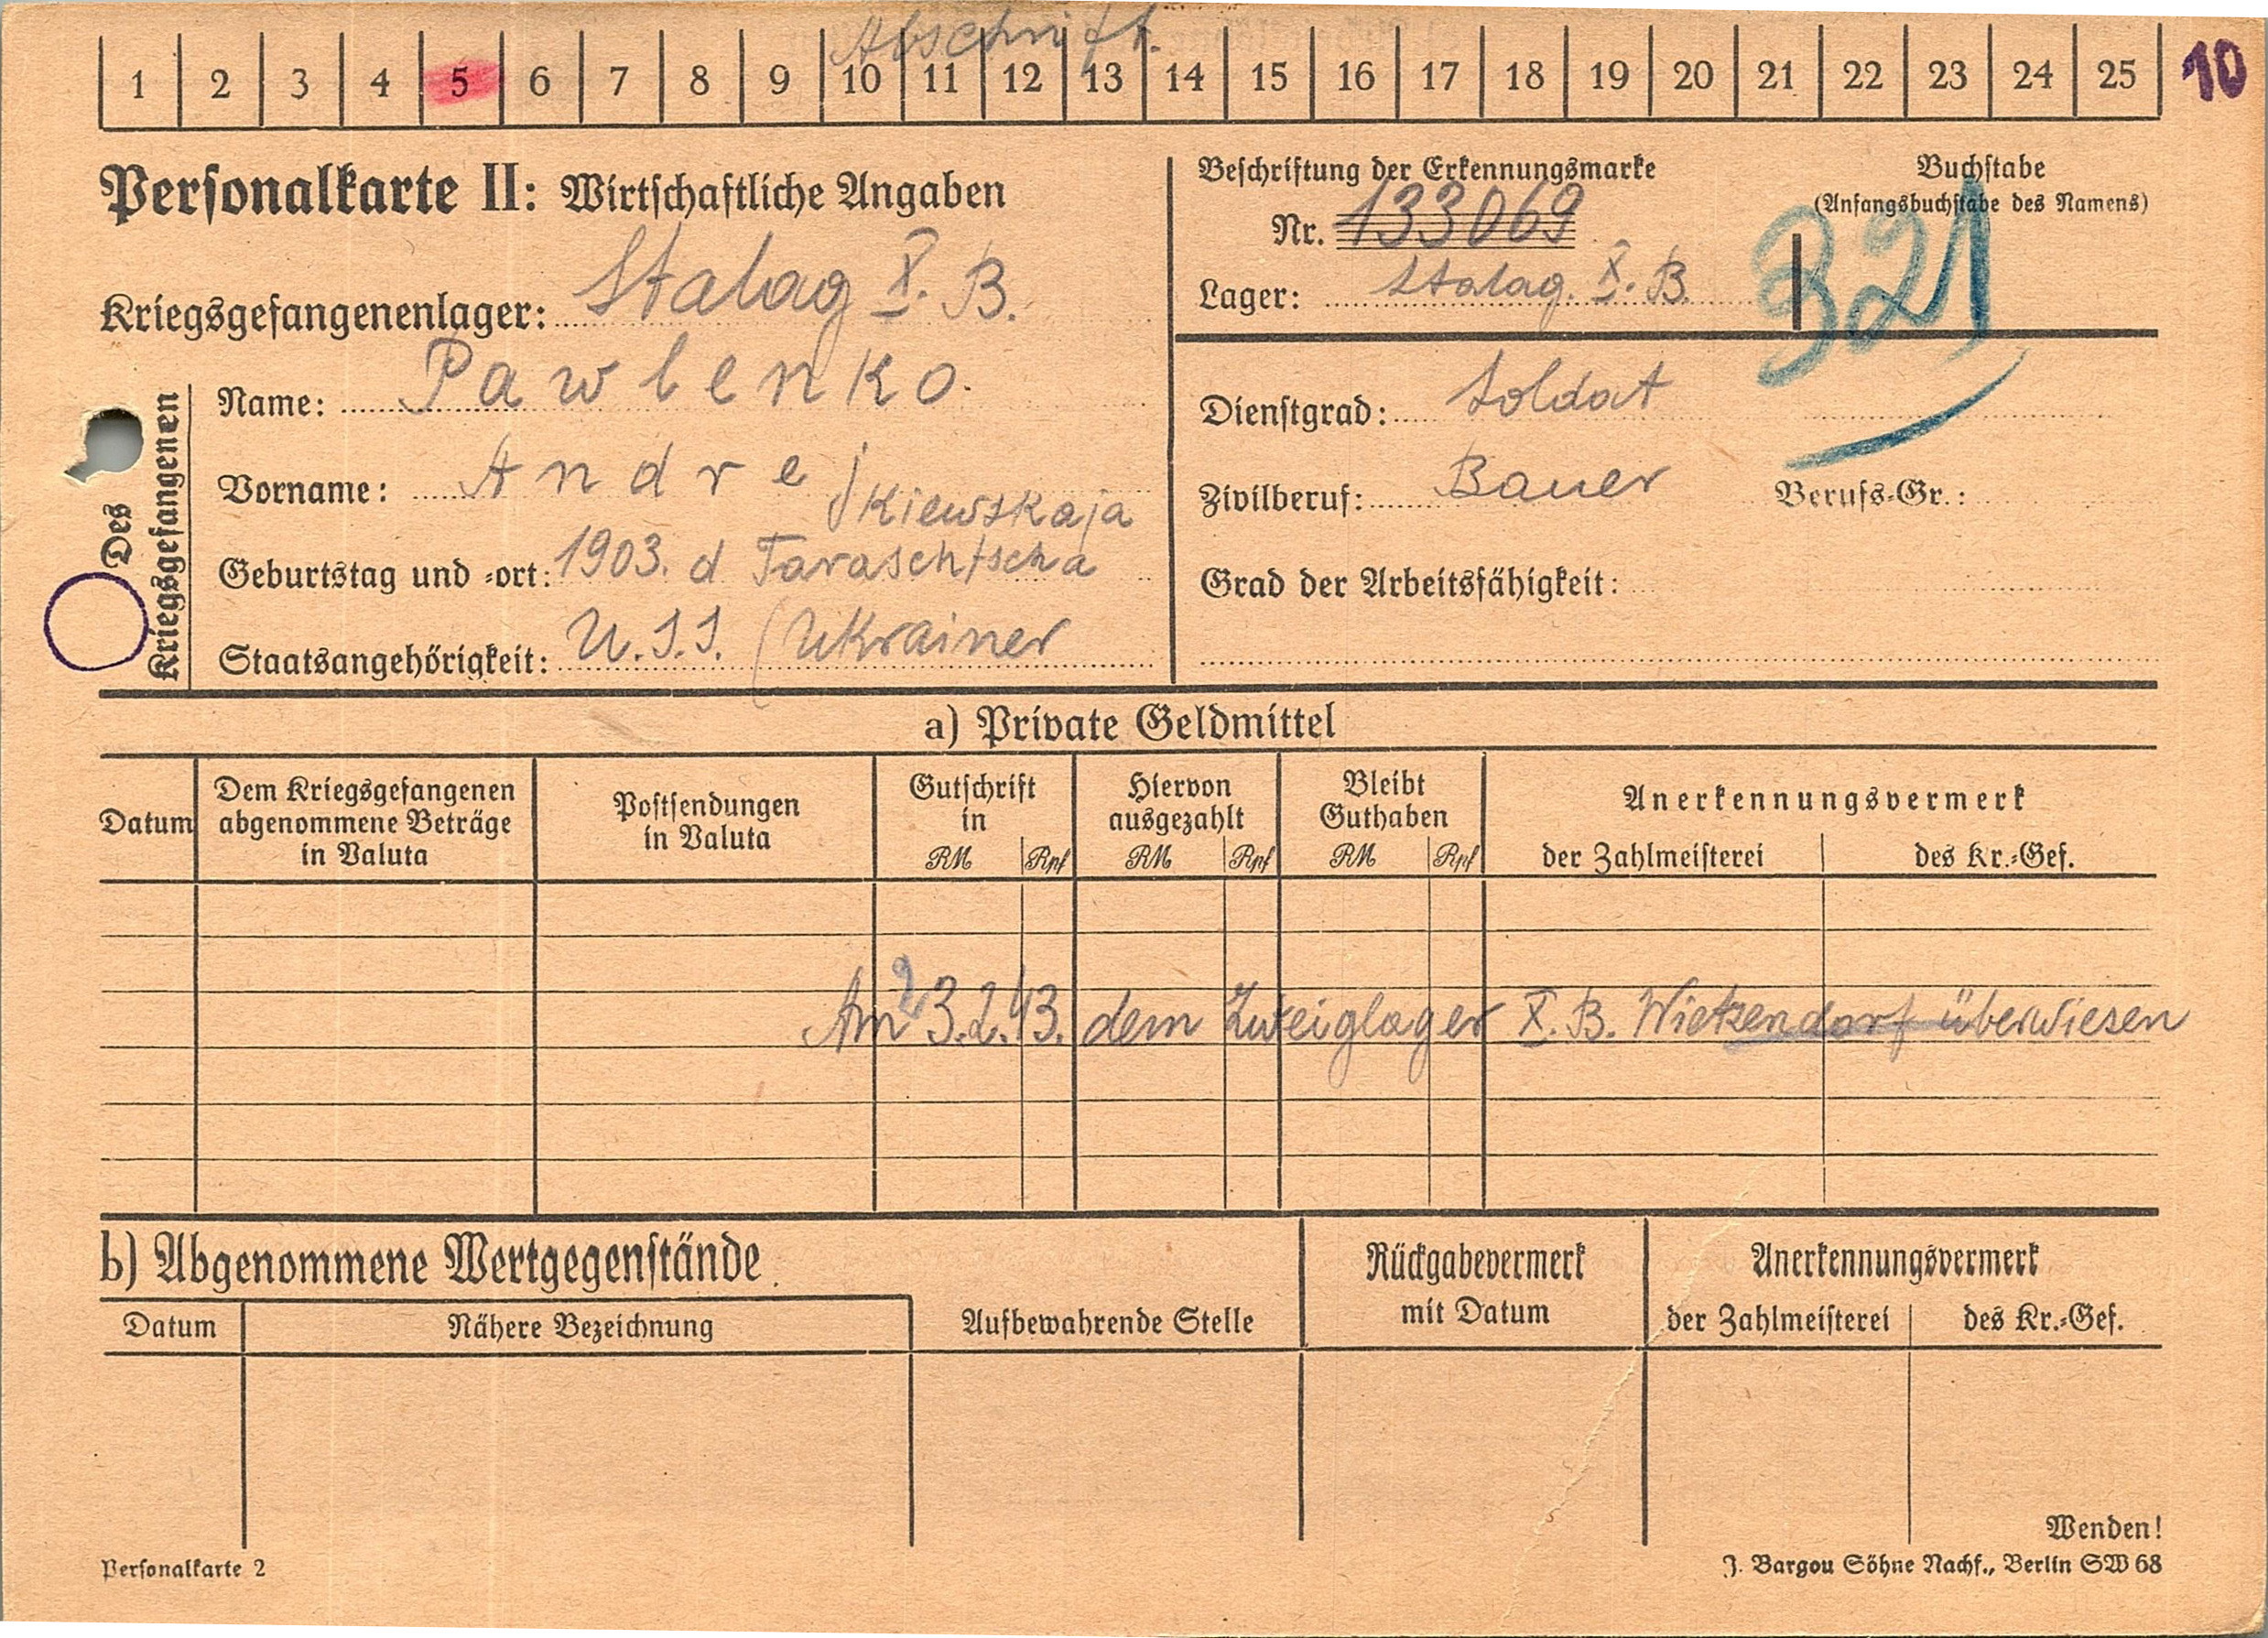 Abschrift.
1 2 3 4 5 6 7 8 9 10 11 12 13 14 15 16 17 18 19 20 21 22 23 24 25 10
Personalkarte II: Wirtschaftliche Angaben
Beschriftung der Erkennungsmarke
Nr. 133069
Lager: Stalag. X. B.
Buchstabe
(Anfangsbuchstabe des Namens)
321
Kriegsgefangenenlager: Stalag X. B.
Des Kriegsgefangenen
Name: Pawlenko.
Vorname: Andrej
Kiewskaja
Geburtstag und -ort: 1903. d Taraschtscha
Staatsangehörigkeit: U.S.S. (Ukrainer
Dienstgrad: Soldat
Zivilberuf: Bauer Berufs-Gr.:
Grad der Arbeitsfähigkeit:
a) Private Geldmittel
Datum
Dem Kriegsgefangenen
abgenommene Beträge
in Valuta
Postsendungen
in Valuta
Gutschrift
in
RM Rpf
Hiervon
ausgezahlt
RM Rpf
Bleibt
Guthaben
RM Rpf
Anerkennungsvermerk
der Zahlmeisterei des Kr.-Gef.
Am 23.2.43. dem Zweiglager X. B. Wietzendorf überwiesen
b) Abgenommene Wertgegenstände
Datum Nähere Bezeichnung
Aufbewahrende Stelle
Rückgabevermerk
mit Datum
Anerkennungsvermerk
der Zahlmeisterei des Kr.-Gef.
Wenden!
Personalkarte 2
J. Bargou Söhne Nachf., Berlin SW 68